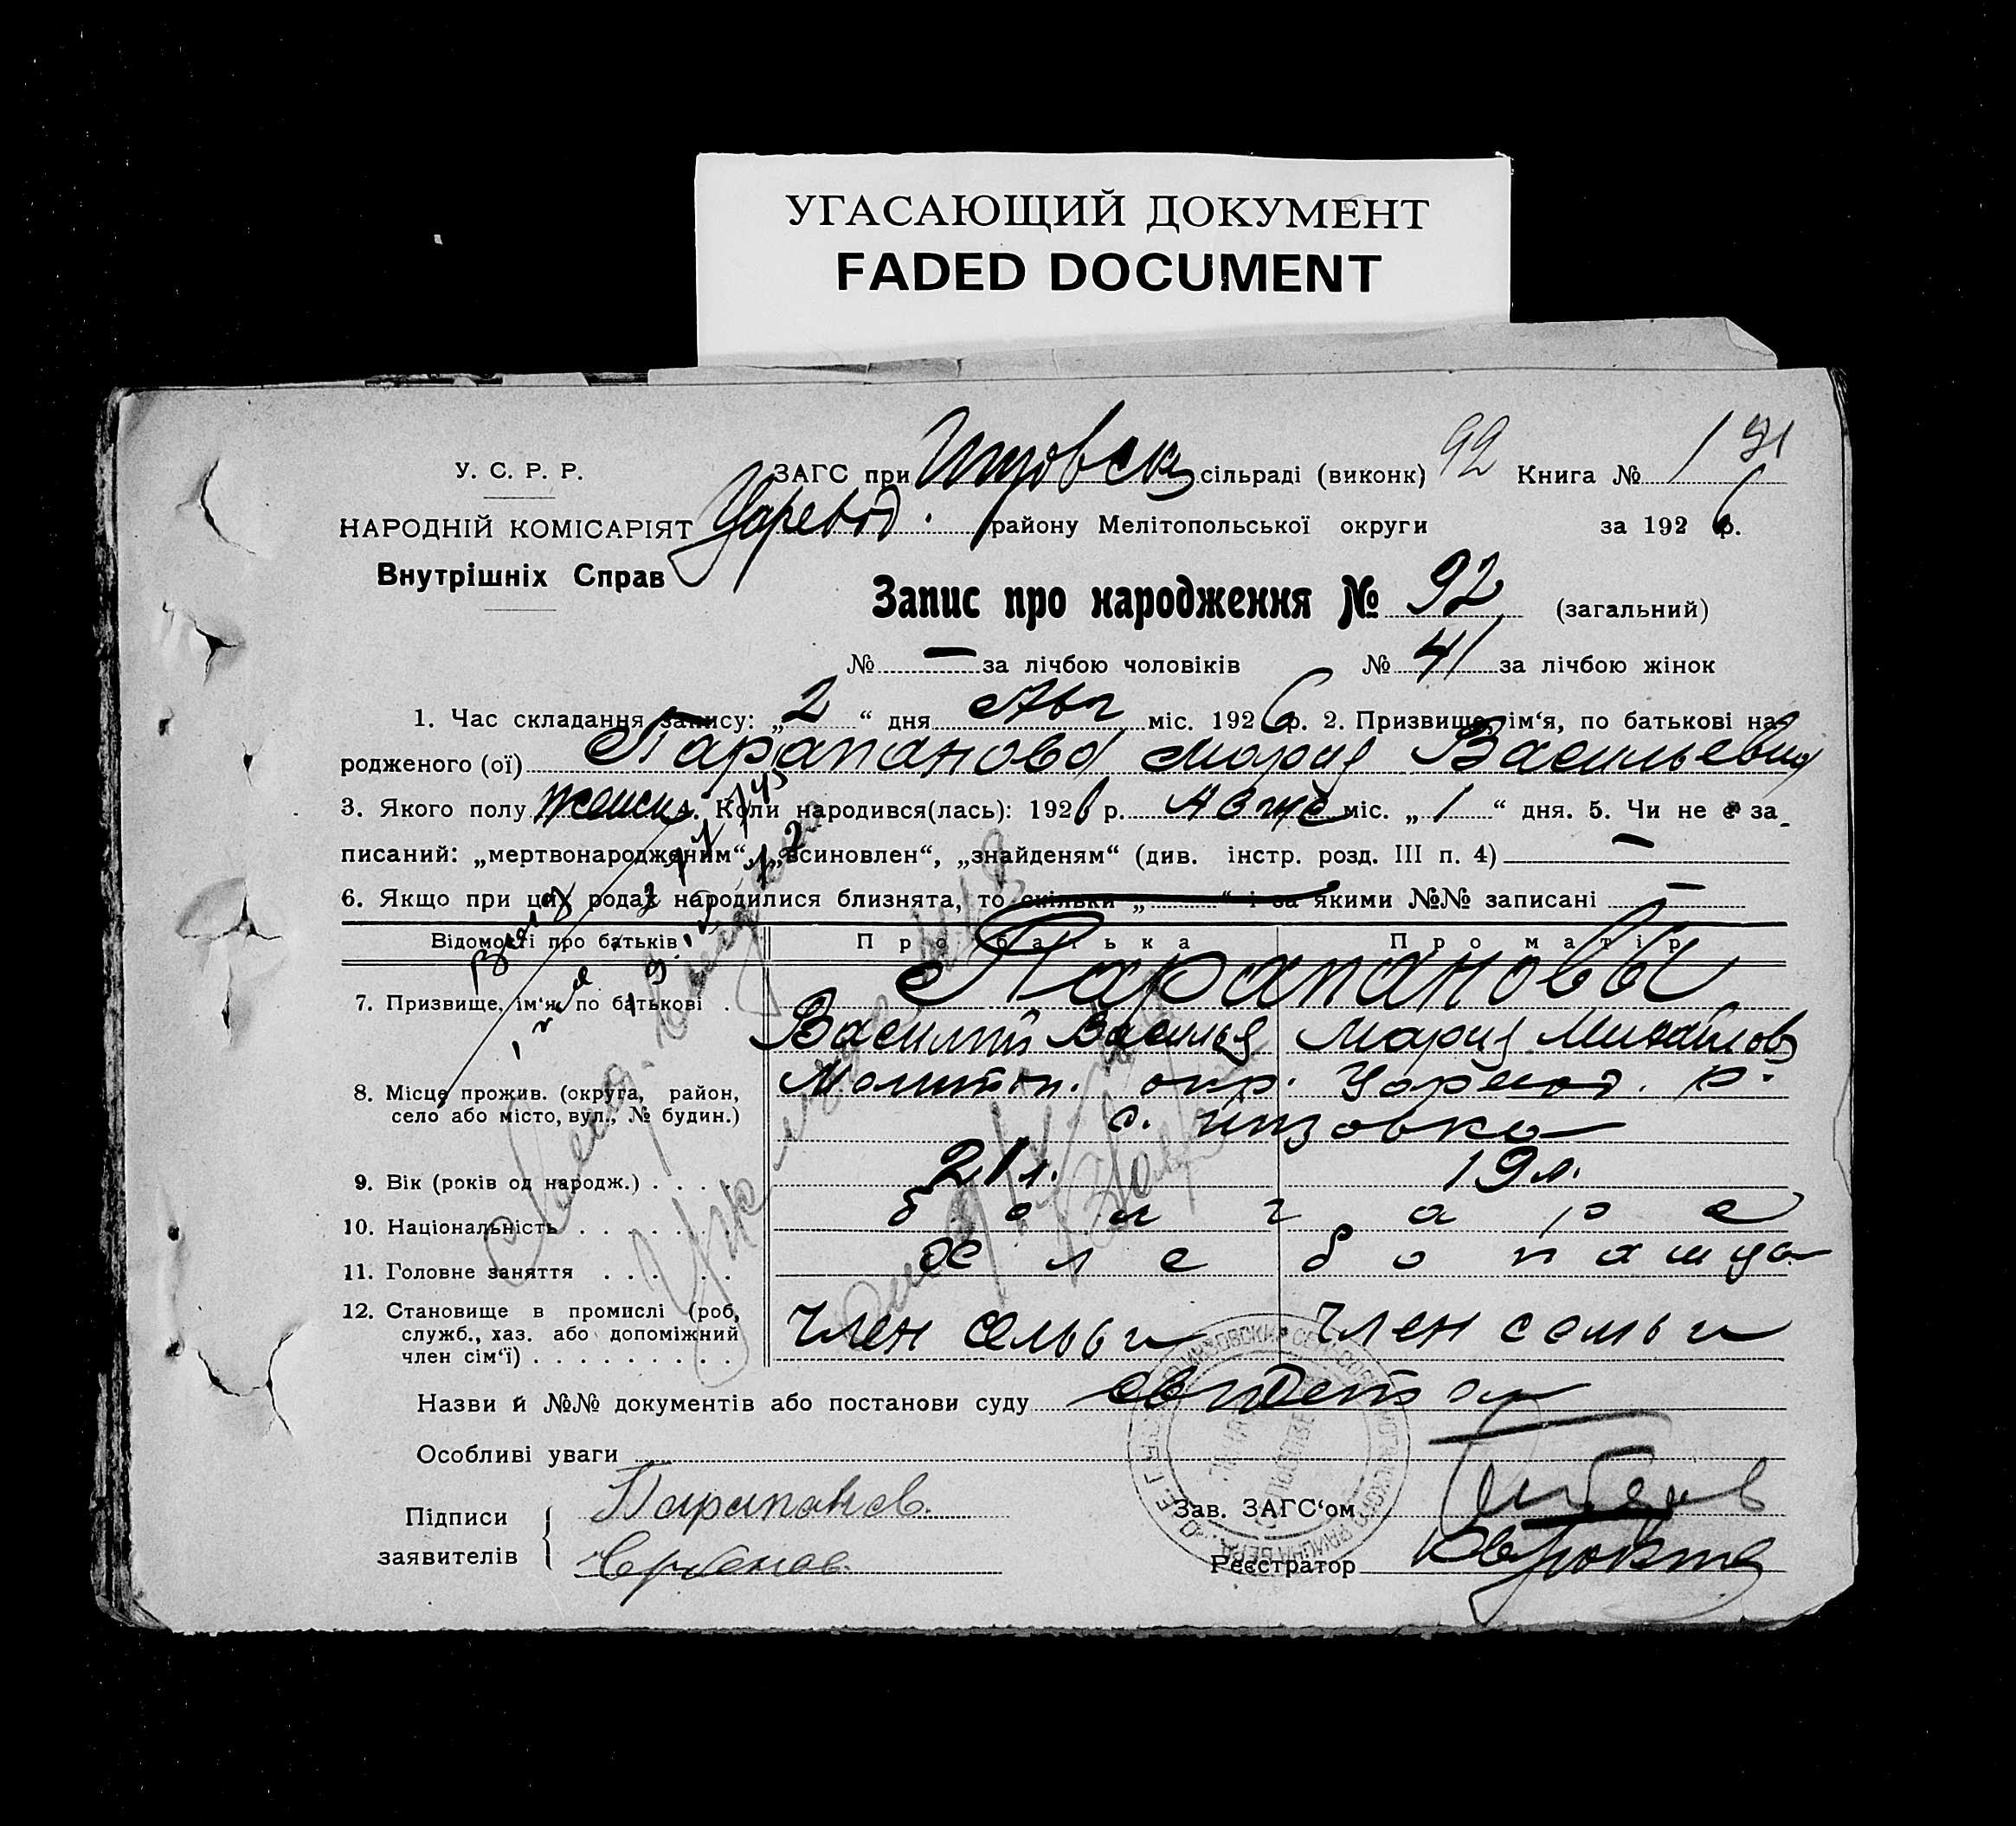 УГАСАЮЩИЙ ДОКУМЕНТ
FADED DOCUMENT
У. С. Р. Р.
НАРОДНІЙ КОМІСАРІЯТ
Внутрішніх Справ
ЗАГС при Инзовск сільраді (виконк) 92 Книга № 1 91
Царевод. району Мелітопольської округи за 1926 р.
Запис про народження № 92 (загальний)
№ — за лічбою чоловіків № 41 за лічбою жінок
1. Час складання запису: „2“ дня Авг міс. 1926 р. 2. Призвище, ім‘я, по батькові на-
родженого (ої) Парапанова Мария Васильевна
3. Якого полу женск 4. Коли народився(лась): 1926 р. Авгус міс. „1“ дня. 5. Чи не є за-
писаний: „мертвонародженим“, „всиновлен“, „знайденям“ (див. інстр. розд. III п. 4) —
6. Якщо при цих родах народилися близнята, то скільки „ “ і за якими №№ записані —
Відомості про батьків. Про батька Про матір
Парапановы
7. Призвище, ім‘я, по батькові . Василий Василья Мария Михайлов
8. Місце прожив. (округа, район, село або місто, вул., № будин.) Мелитоп. окр. Царевод. р.
с. Инзовка
9. Вік (років од народж.) . . . . 21 л. 19 л.
10. Національність . . . . . . . болгаре
11. Головне заняття . . . . . . Хлебопашца
12. Становище в промислі (роб, служб., хаз. або допоміжний член сім‘ї) . . . . . . . . . Член семьи Член семьи
Назви й №№ документів або постанови суду
Особливі уваги
Підписи заявителів
Парапанов.
Зав. ЗАГС‘ом
Реєстратор